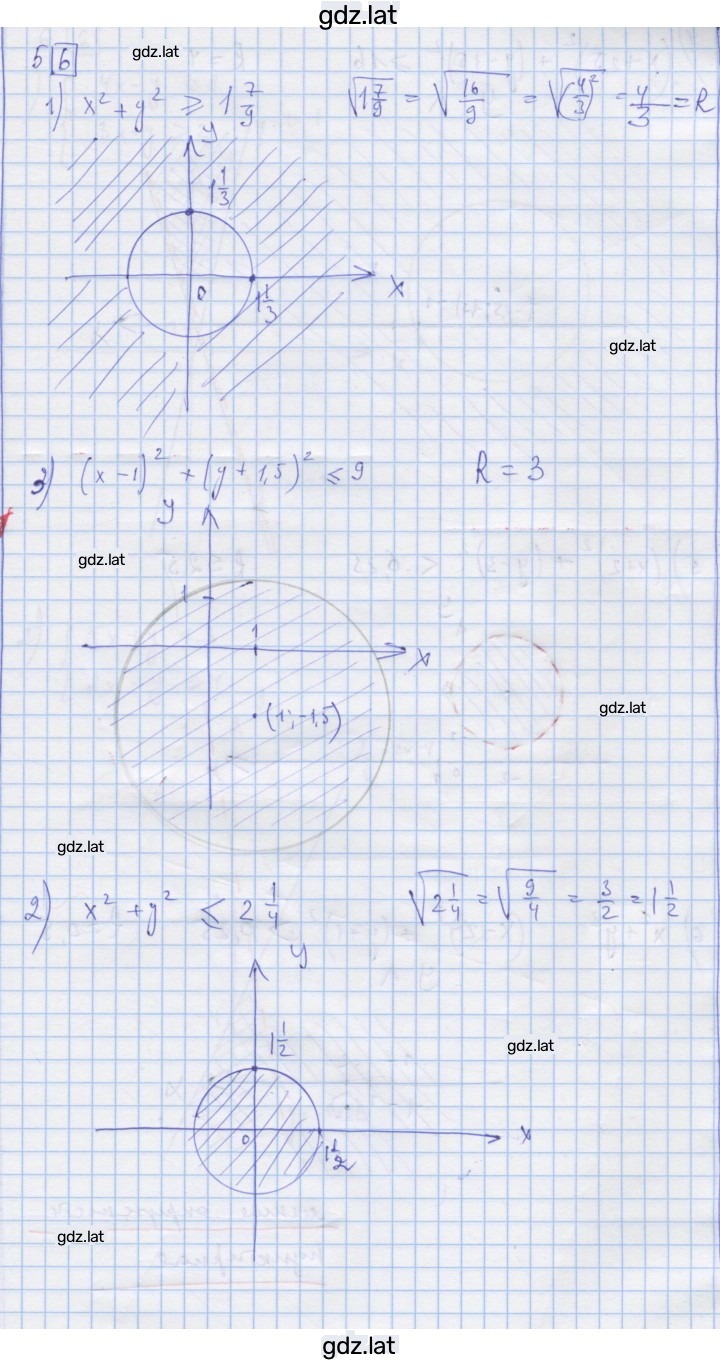 gdz.lat
5 6
gdz.lat
1) x² + y² ⩾ 1 7/9   √(1 7/9) = √(16/9) = √((4/3)²) = 4/3 = R
y
1 1/3
0
1 1/3
x
gdz.lat
3) (x - 1)² + (y + 1,5)² ⩽ 9   R = 3
y
gdz.lat
1
1
x
(1; -1,5)
gdz.lat
gdz.lat
2) x² + y² ⩽ 2 1/4   √(2 1/4) = √(9/4) = 3/2 = 1 1/2
y
1 1/2
gdz.lat
0
1 1/2
x
gdz.lat
gdz.lat